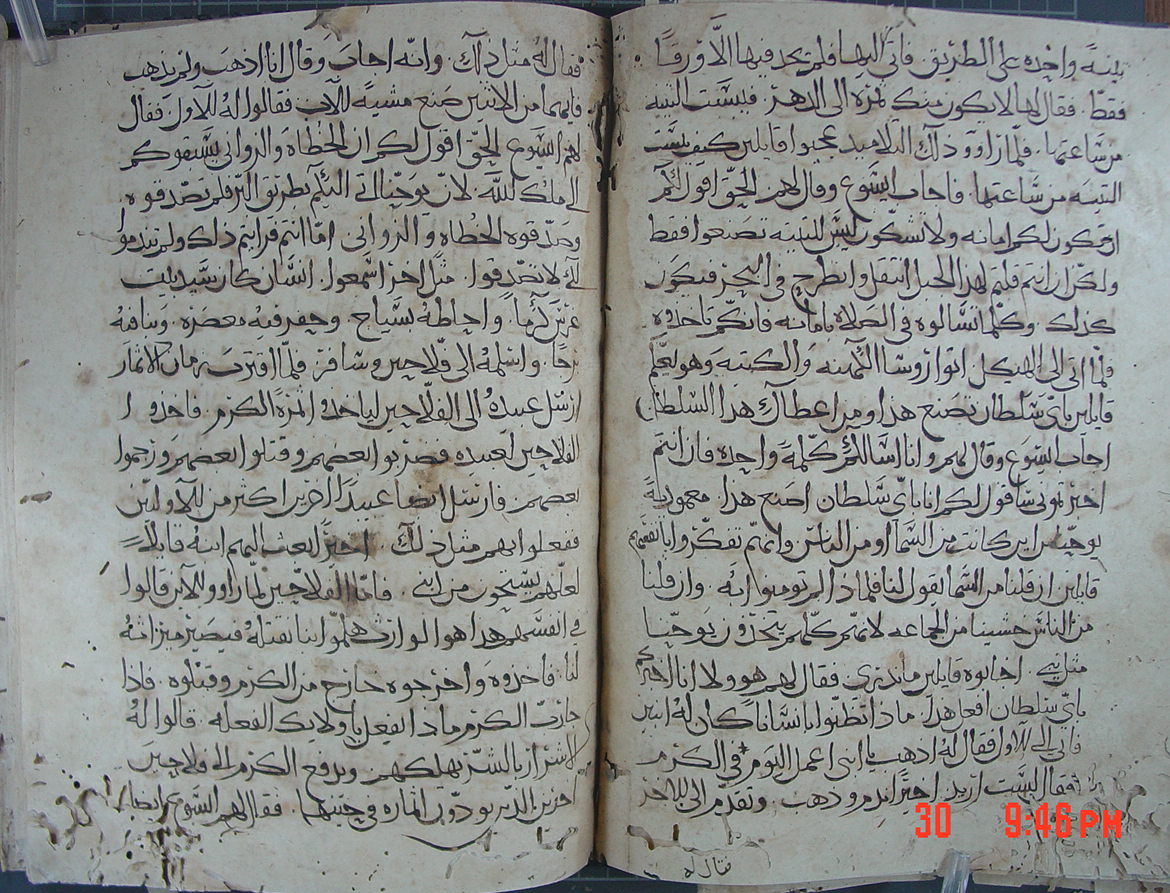 تينةً واحده على الطريق فاتى اليها فلم يجد فيها الّا ورقًا
فقط فقال لها لا يكون منك ثمزه الى الدهر فيبست التينه
من ساعتها. فلمّا راوو ذلك التلاميد عجبوا قايلين كيف يبست
التينه من ساعتها فاجاب ايشوع وقال لهم الحقّ اقول لكم
ان تكون لكم امانه ولا تشكّون ليس للتينه تصنعوا فقط
ولكن ان انتم قلتم لهدا الجبل انتقل وانطرح في البحر فيكون
كذلك وكلّما تسالوه في الصلاة بامانه فانكم تاخدوه
فلمّا اتى الى الهيكل اتوا روسا الكهنه والكتبه وهو يعلّم
قايلين باي سلطان تصنع هذا ومن اعطاك هدا السلطان
اجاب ايسوع وقال لهم وانا اسالكم كلمةً واحده فان انتم
اخبرتموني ساقول لكم انا باي سلطان اصنع هذا معموديةً
يوحنّا من اين كانت من السما او من الناس وانهم تفكّروا بانفسهم
قايلين ان قلنا من السما يقول لنا فلماذا لم تومنوا انه وان قلنا
من الناس خشينا من الجماعه لانهم كلهم يتخدون يوحنّا
مثل نبي اجابوه قايلين ما ندري فقال لهم هو ولا انا اخبركم
باي سلطان افعل هدا ماذا تظنّوا انسانًا كان له ابنين
فاتى الى الاول فقال له اذهب يا ابني اعمل اليوم في الكرم
فقال ليست اريد اخيرًا ندم وذهب وتقدّم الى الاخر
فقال له
فقال له مثل ذلك وانّه اجاب وقال انا اذهب ولم يذهب
فايهما من الاتنين صنع مشيه للاب فقالوا له الاول فقال
لهم ايشوع الحق اقول لكم ان الخطاه والزواني يسبقوكم
الى ملك الله لانّ يوحنّا اتى اليكم بطريق البرّ فلم تصدقوه
وصدقوه الخطاه والزواني امّا انتم فرايتم ذلك ولم تندموا
لكي لا تصدقوا مثل اخر اسمعوا انسان كان سيد بيت
غرس كرمًا واحاطه بسياج وحفر فيه معصره وبنا فيه
برجًا واسلمه الى فلّاحين وسافر فلمّا اقترب زمان الاثمار
ارسل عبيده الى الفلّاحين لياخدوا ثمرة الكرم فاخدوا
الفلاحين لعبيده فضربوا بعضهم وقتلوا بعضهم ورجموا
بعضهم فارسل ايضا عبيدًا اخرين اكثر من الاولين
ففعلوا بهم مثل ذلك اخيرًا بعث اليهم ابنه قايلًا
لعلّهم يستحون من ابني فامّا الفلاحين لما راوو الابن قالوا
في انفسهم هدا هوا الوارث هلمّوا بنا نقتله فيصير ميراثه
لنا فاخدوه واخرجوه خارج من الكرم وقتلوه فاذا
جا ربّ الكرم ماذا يفعل باولايك الفعله قالوا له
الاشرار بالشرّ يهلكهم ويدفع الكرم الى فلاحين
اخرين الدين يودّون اثماره في حينها فقال لهم ايسوع ايضا
30 9:46PM